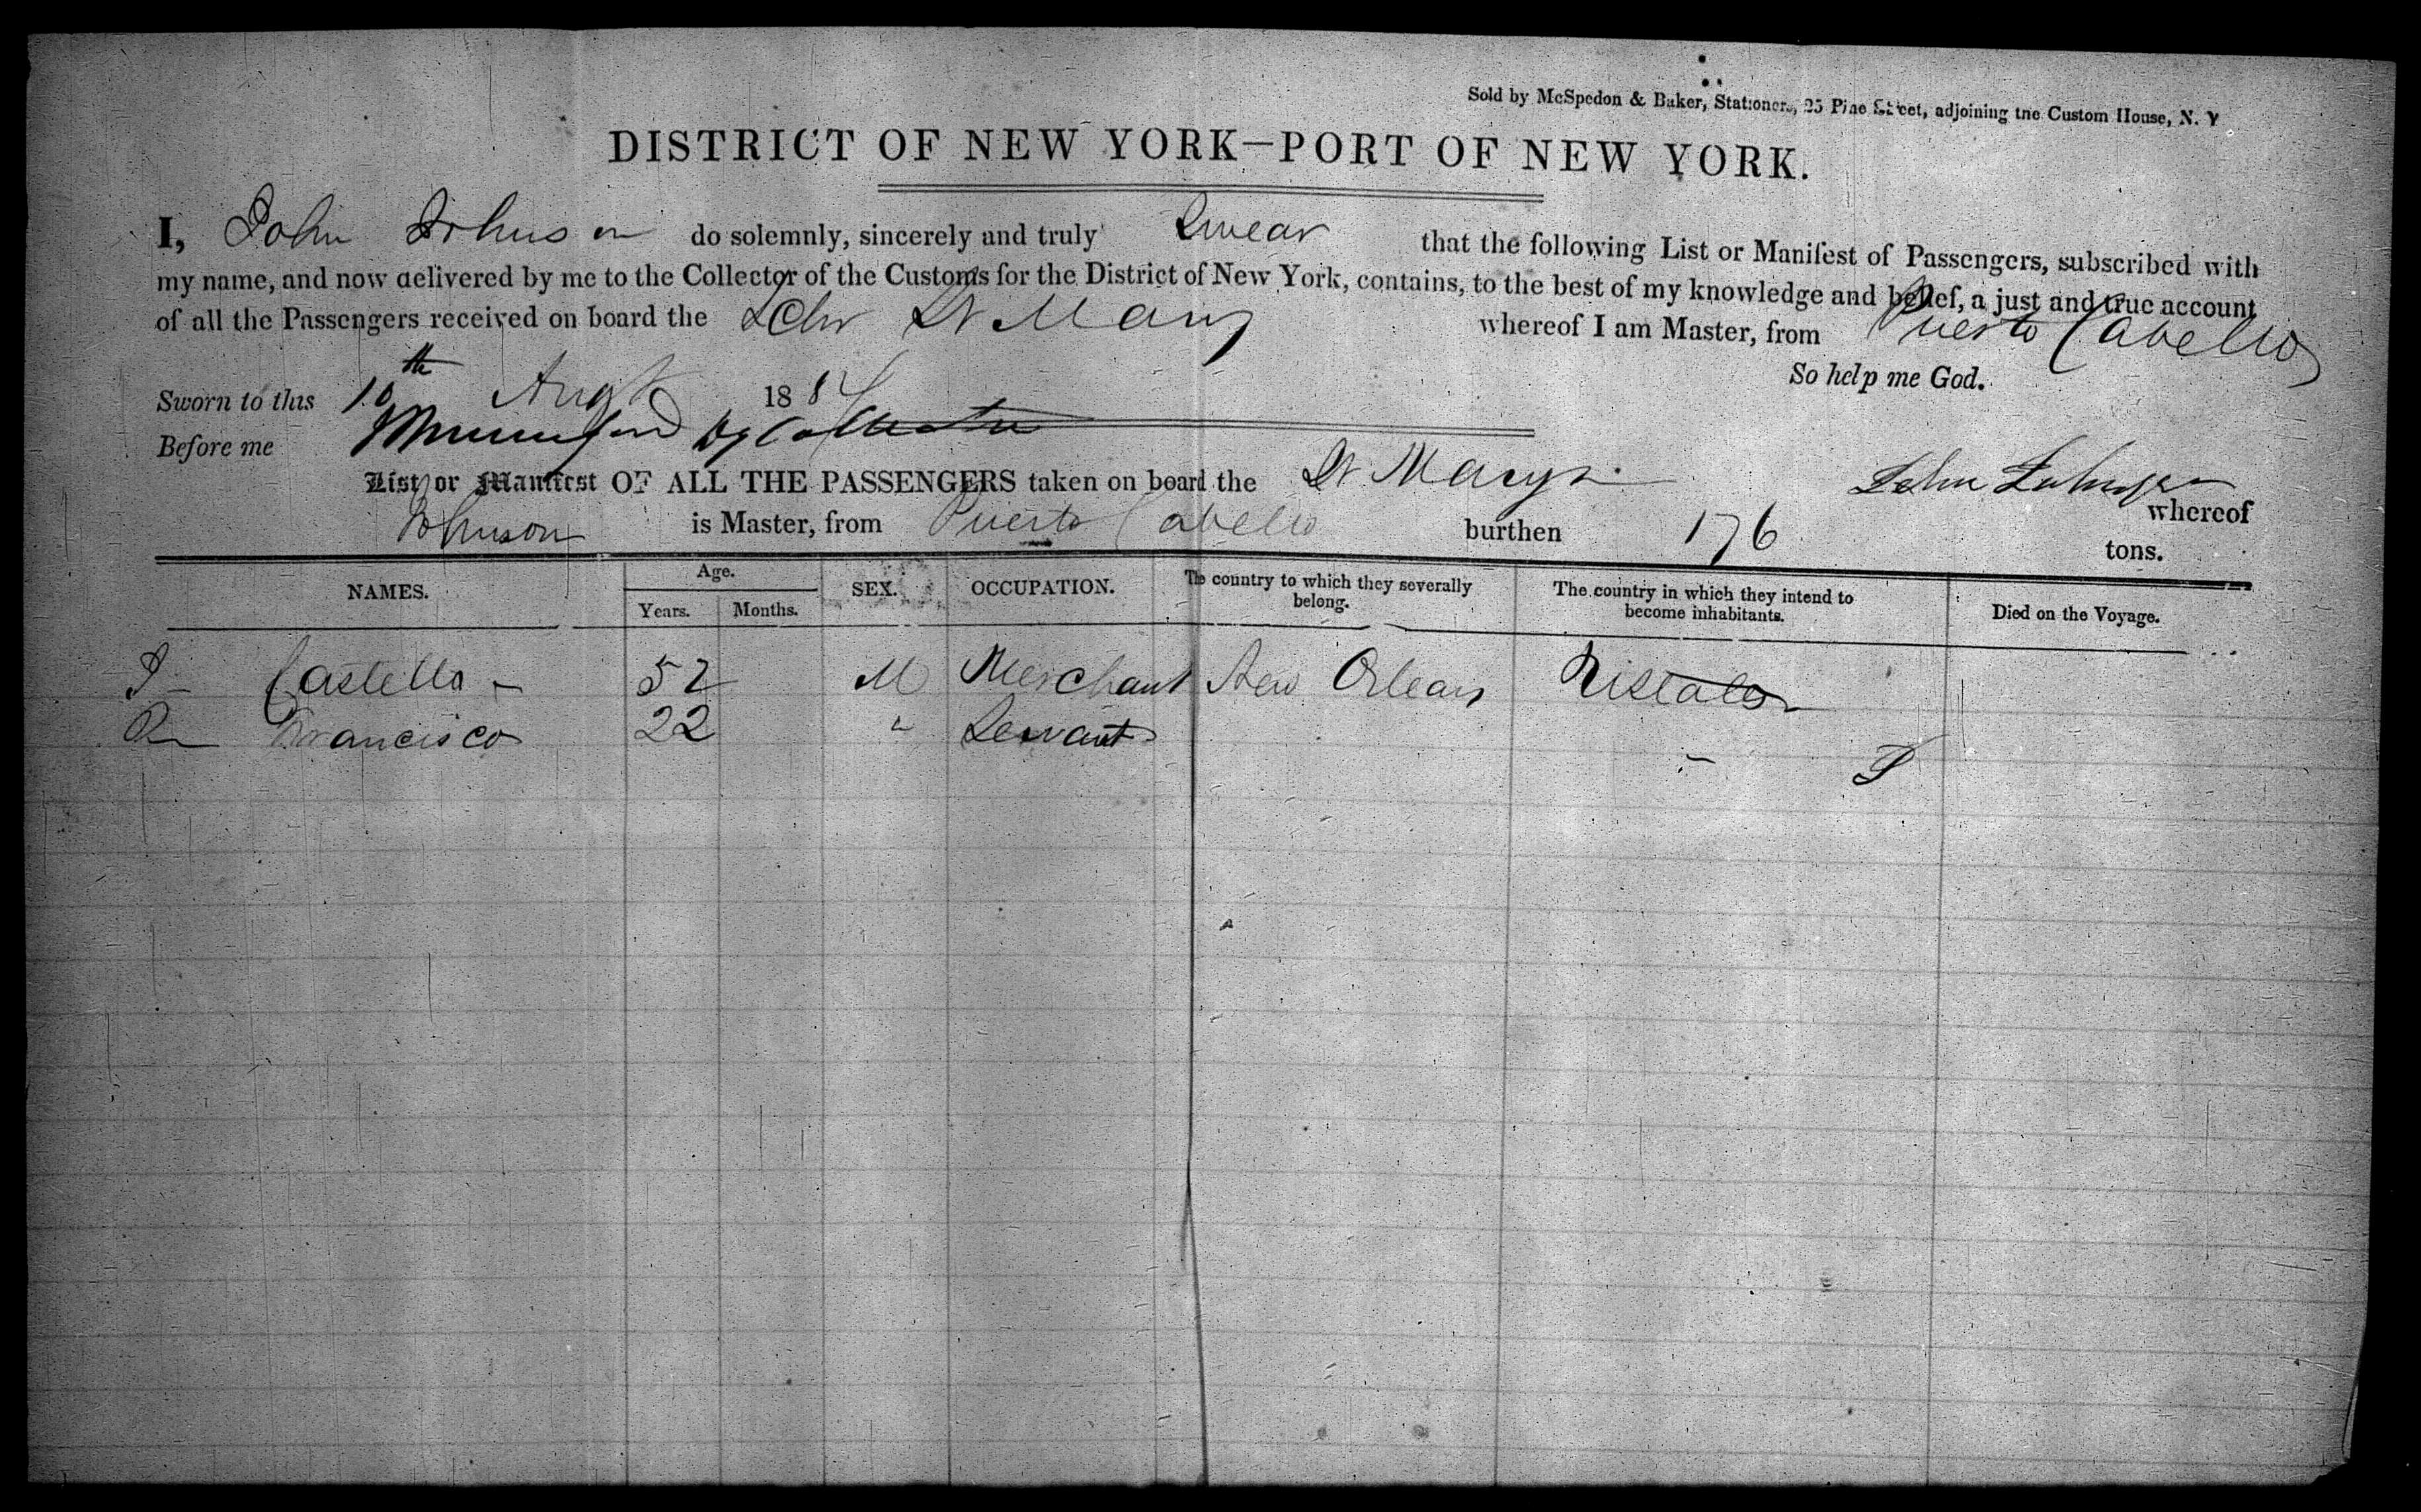 Sold by McSpedon & Baker, Stationers, 25 Pine Street, adjoining the Custom House, N. Y
DISTRICT OF NEW YORK—PORT OF NEW YORK.
I, John Johnson do solemnly, sincerely and truly Swear that the following List or Manifest of Passengers, subscribed with
my name, and now delivered by me to the Collector of the Customs for the District of New York, contains, to the best of my knowledge and belief, a just and true account
of all the Passengers received on board the Schr St Mary whereof I am Master, from Puerto Cabello
So help me God.
Sworn to this 10th Augt 18
Before me Dy Collector
List or Manifest OF ALL THE PASSENGERS taken on board the St Marys John Johnson whereof
Johnson is Master, from Puerto Cabello burthen 176 tons.
NAMES. Age. Years. Months. SEX. OCCUPATION. The country to which they severally belong. The country in which they intend to become inhabitants. Died on the Voyage.
Castello 52 M Merchant New Orleans
Francisco 22 " Servant